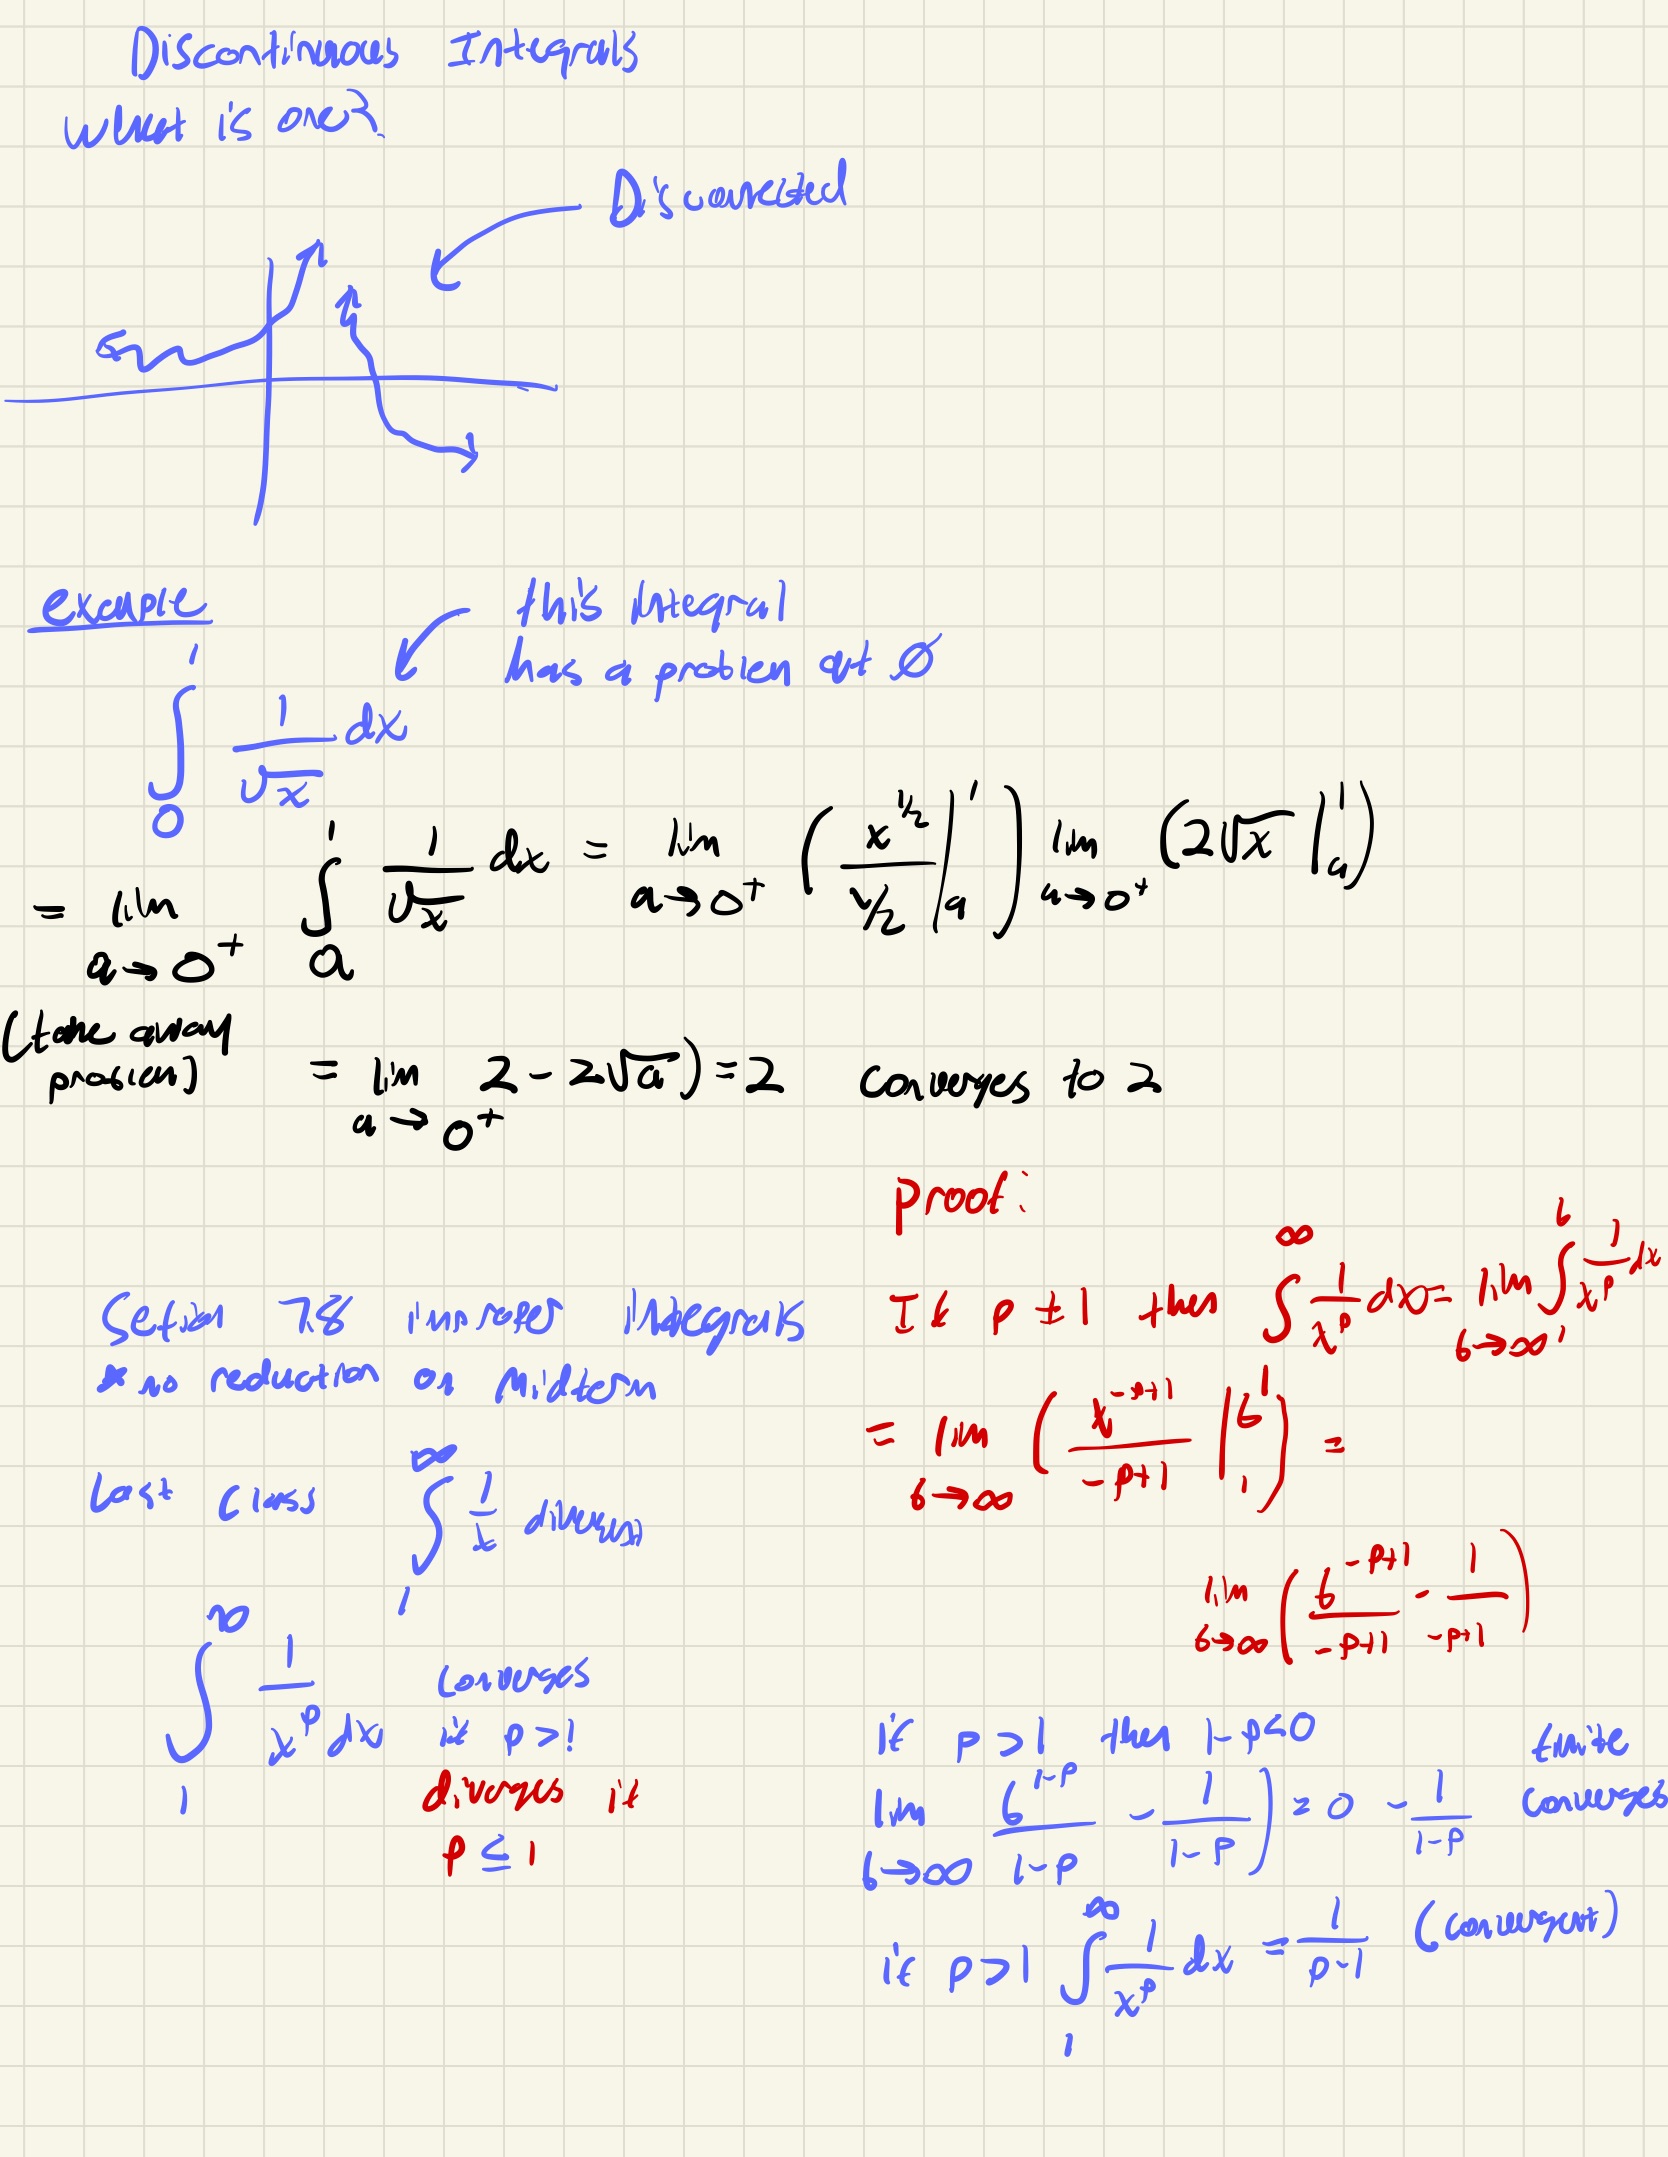 Discontinuous Integrals
what is one?
Disconnected
example
this integral
has a problem at ∅
∫_0^1 1/√x dx
= lim_{a→0^+} ∫_a^1 1/√x dx = lim_{a→0^+} (x^{1/2}/(1/2) |_a^1) lim_{a→0^+} (2√x |_a^1)
(take away
problem)
= lim_{a→0^+} 2 - 2√a) = 2 converges to 2
Section 7.8 improper integrals
* no reduction on Midterm
Last Class ∫_1^∞ 1/x diverges
∫_1^∞ 1/x^p dx converges
if p > 1
diverges if
p ≤ 1
proof:
If p ≠ 1 then ∫^∞ 1/x^p dx = lim_{b→∞} ∫_1^b 1/x^p dx
= lim_{b→∞} (x^{-p+1}/(-p+1) |_1^b) =
lim_{b→∞} (b^{-p+1}/(-p+1) - 1/(-p+1))
if p > 1 then 1-p < 0
lim_{b→∞} b^{1-p}/(1-p) - 1/(1-p)) = 0 - 1/(1-p)
finite
converges
if p > 1 ∫_1^∞ 1/x^p dx = 1/(p-1) (convergent)